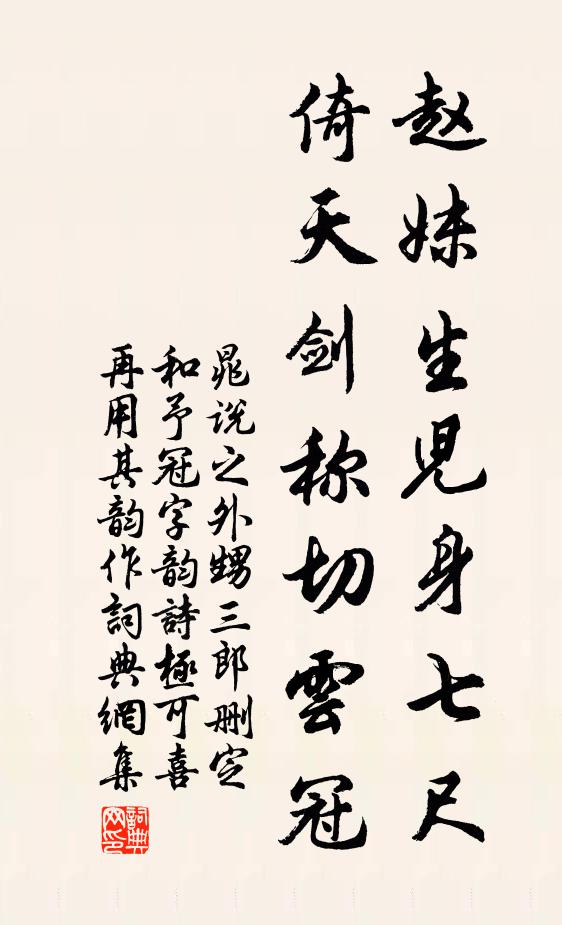 赵妹生児身七尺
倚天剑称切雲冠
晁说之外甥三郎删定
和予冠字韵詩極可喜
再用其韵作詞典網集
詞典
网印